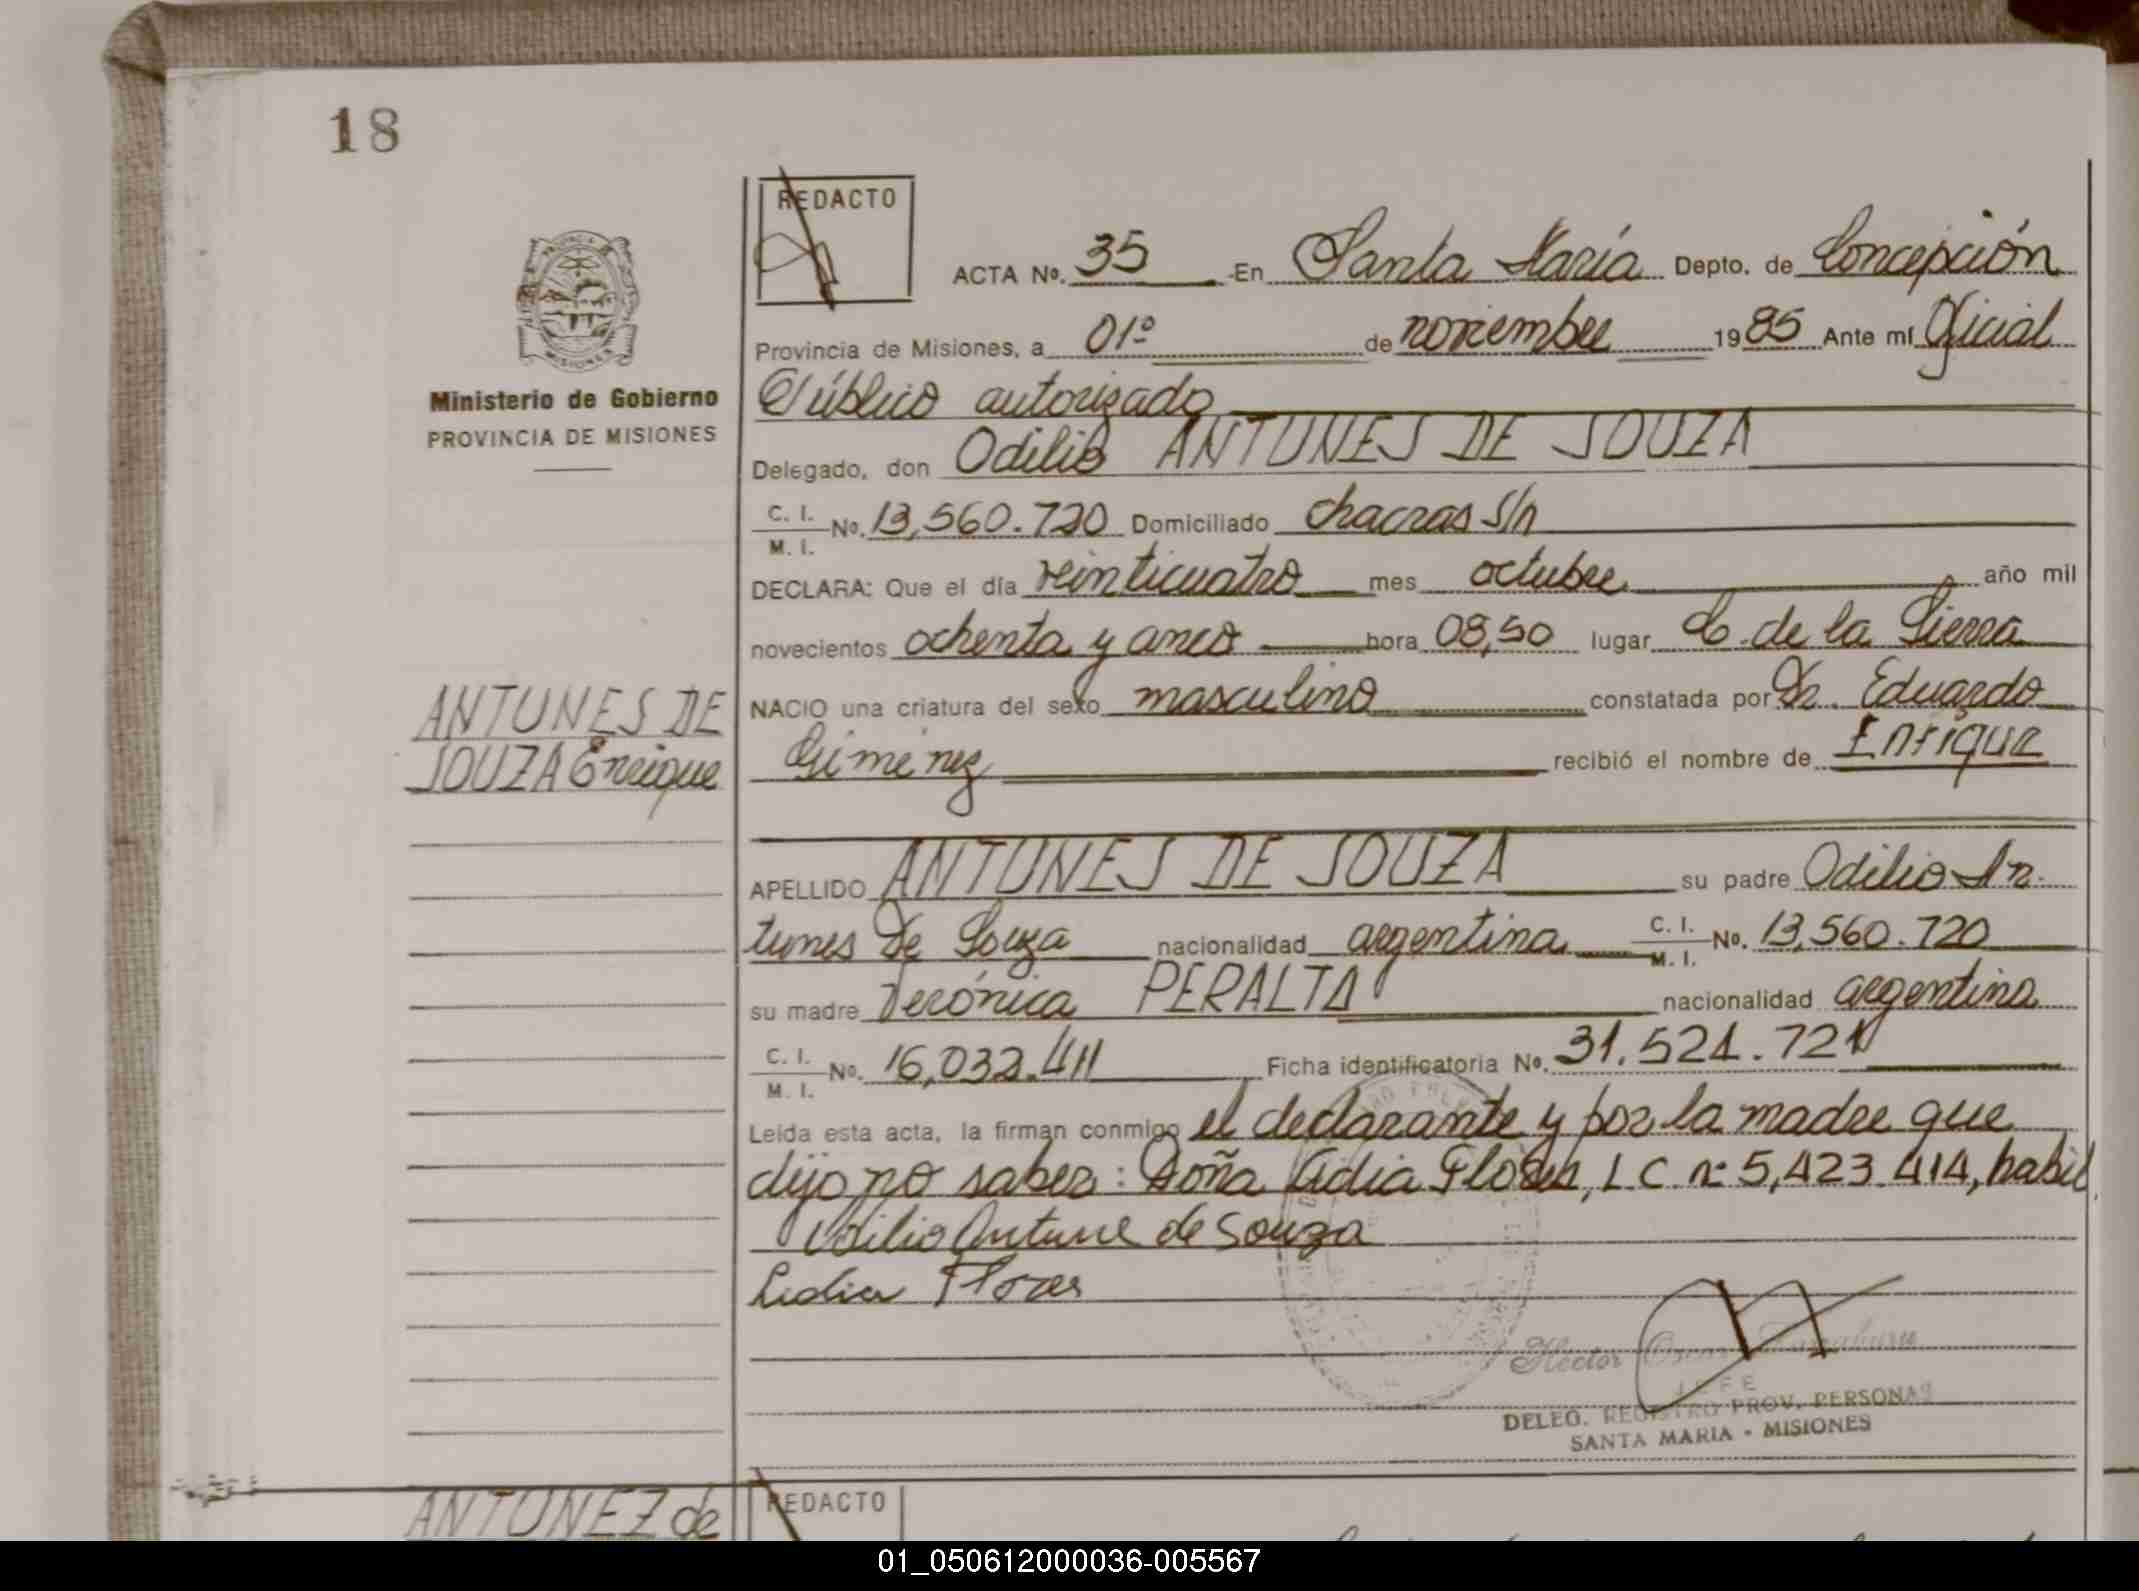 18
REDACTO
ACTA No. 35 En Santa María Depto. de Concepción
Provincia de Misiones, a 01º de noviembre 1985 Ante mí Oficial
Público autorizado
Delegado, don Odilio ANTUNES DE SOUZA
C. I.
M. I. No. 13,560.720 Domiciliado chacras S/n
DECLARA: Que el día veinticuatro mes octubre año mil
novecientos ochenta y cinco hora 08,50 lugar C. de la Sierra
NACIO una criatura del sexo masculino constatada por Dr. Eduardo
Giménez recibió el nombre de Enrique
APELLIDO ANTUNES DE SOUZA su padre Odilio An
tunes De Souza nacionalidad argentina C. I. M. I. No. 13,560.720
su madre Verónica PERALTA nacionalidad argentina
C. I.
M. I. No. 16,032.411 Ficha identificatoria No. 31.521.721
Leída esta acta, la firman conmigo el declarante y por la madre que
dijo no saber: Doña Lidia Flores, L C nº 5,423.414, habil
Odilio Antune de Souza
Lidia Flores
Hector Oscar
JEFE
DELEG. REGISTRO PROV. PERSONAS
SANTA MARIA - MISIONES
PROVINCIA DE
MISIONES
Ministerio de Gobierno
PROVINCIA DE MISIONES
ANTUNES DE
SOUZA Enrique
ANTUNEZ de
REDACTO
01_050612000036-005567